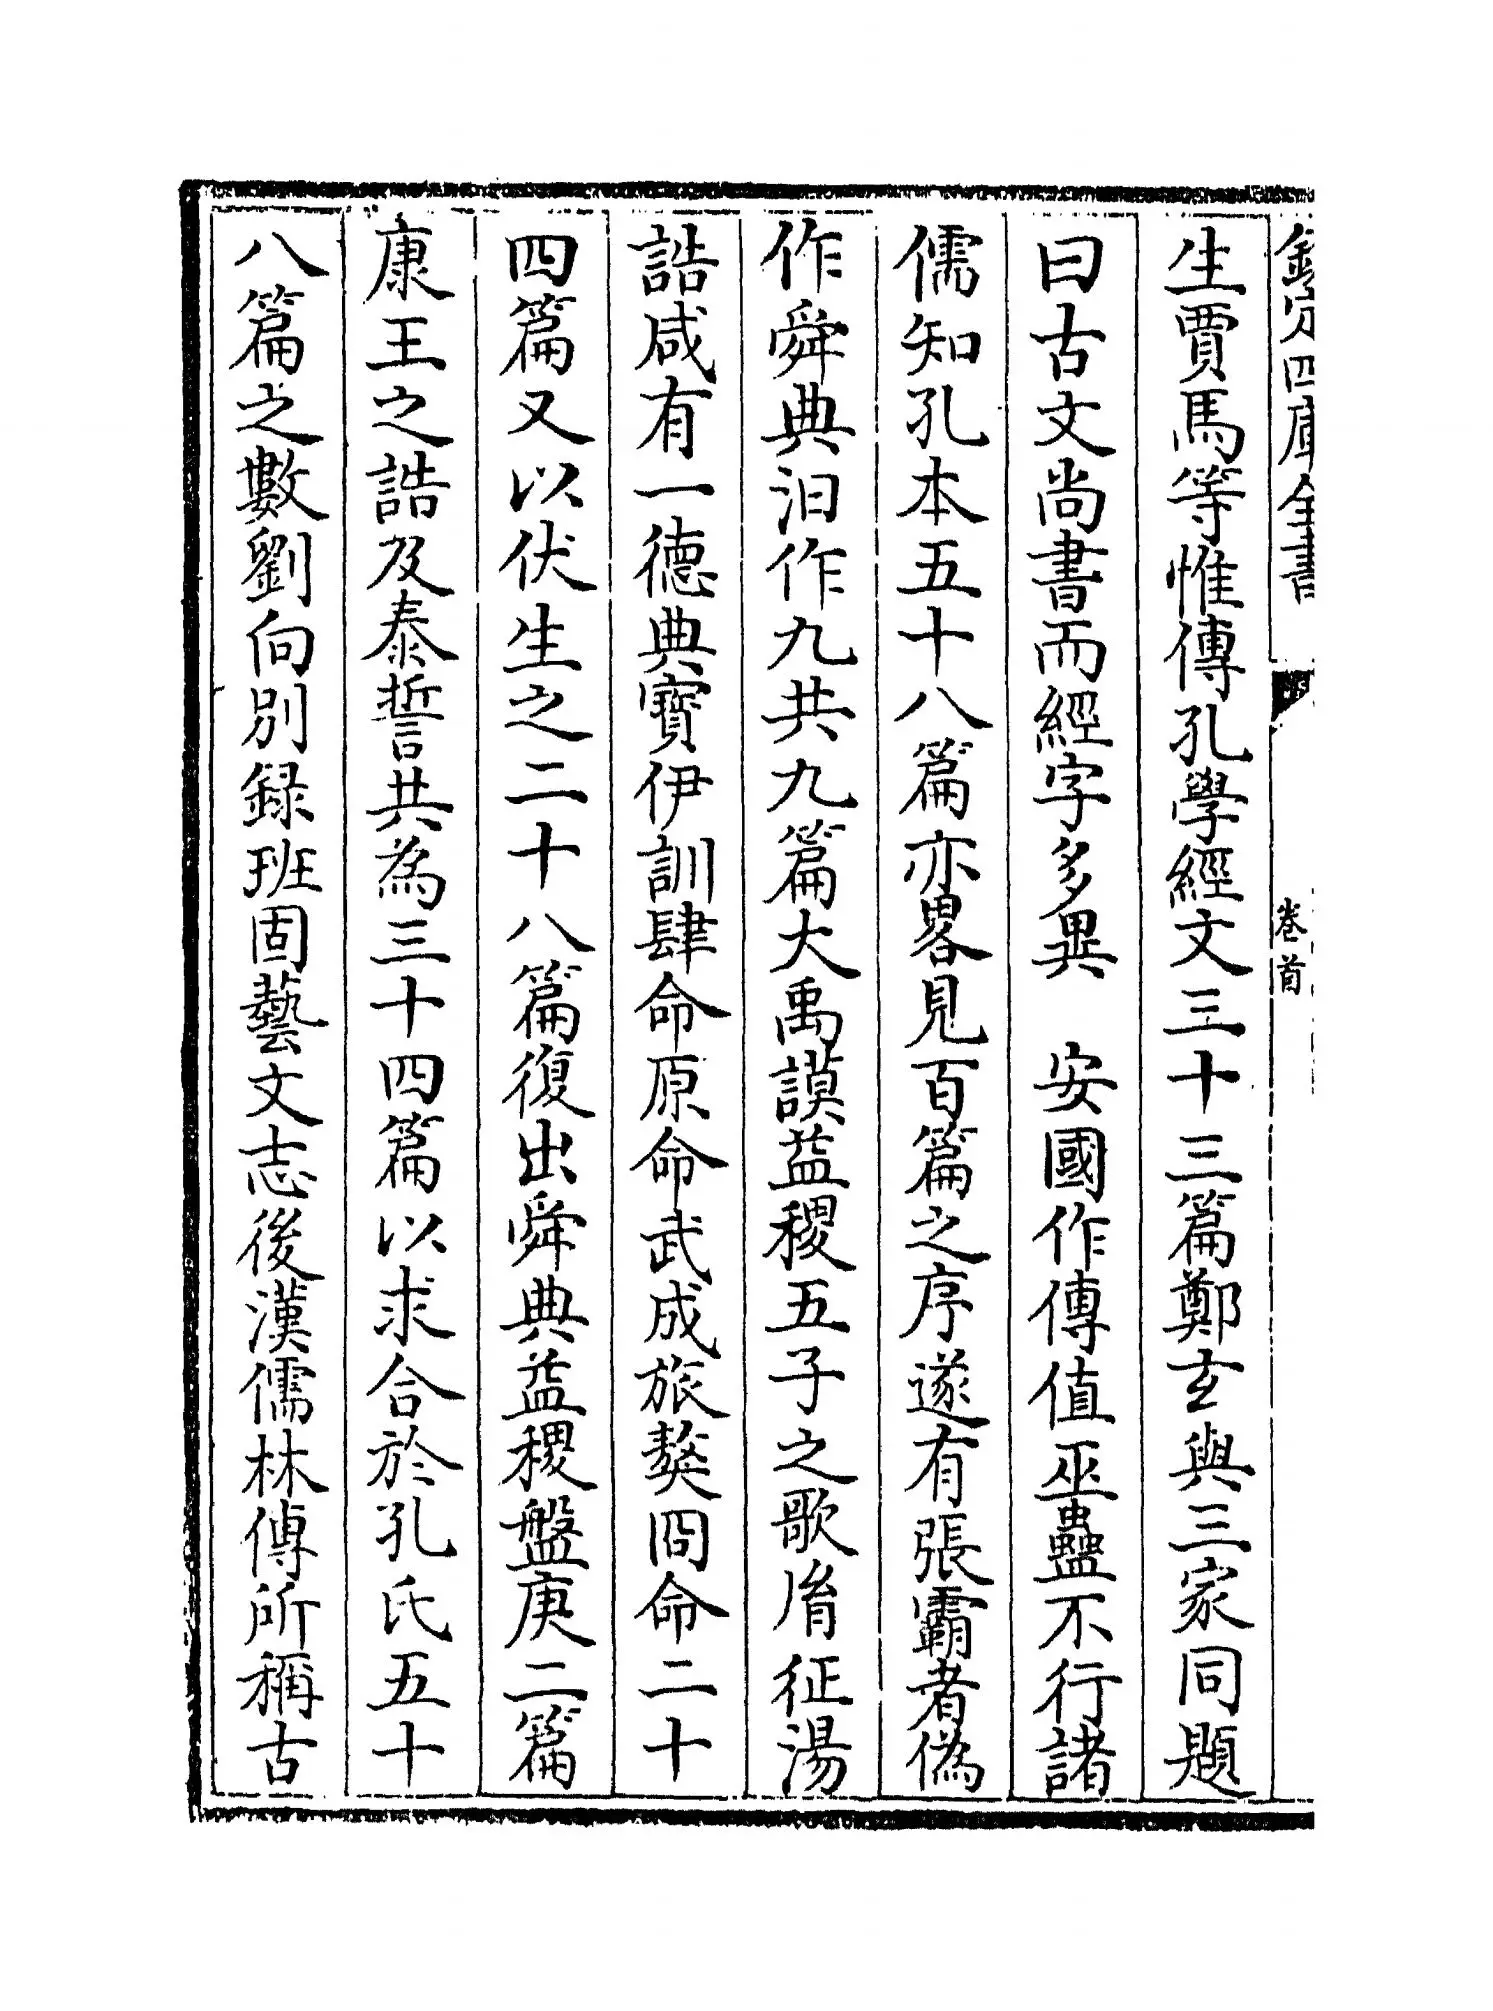 欽定四庫全書
卷首
生賈馬等惟傳孔學經文三十三篇鄭玄與三家同題
曰古文尚書而經字多異　安國作傳值巫蠱不行諸
儒知孔本五十八篇亦畧見百篇之序遂有張霸者偽
作舜典汨作九共九篇大禹謨益稷五子之歌胤征湯
誥咸有一德典寶伊訓肆命原命武成旅獒冏命二十
四篇又以伏生之二十八篇復出舜典益稷盤庚二篇
康王之誥及泰誓共為三十四篇以求合於孔氏五十
八篇之數劉向別録班固藝文志後漢儒林傳所稱古